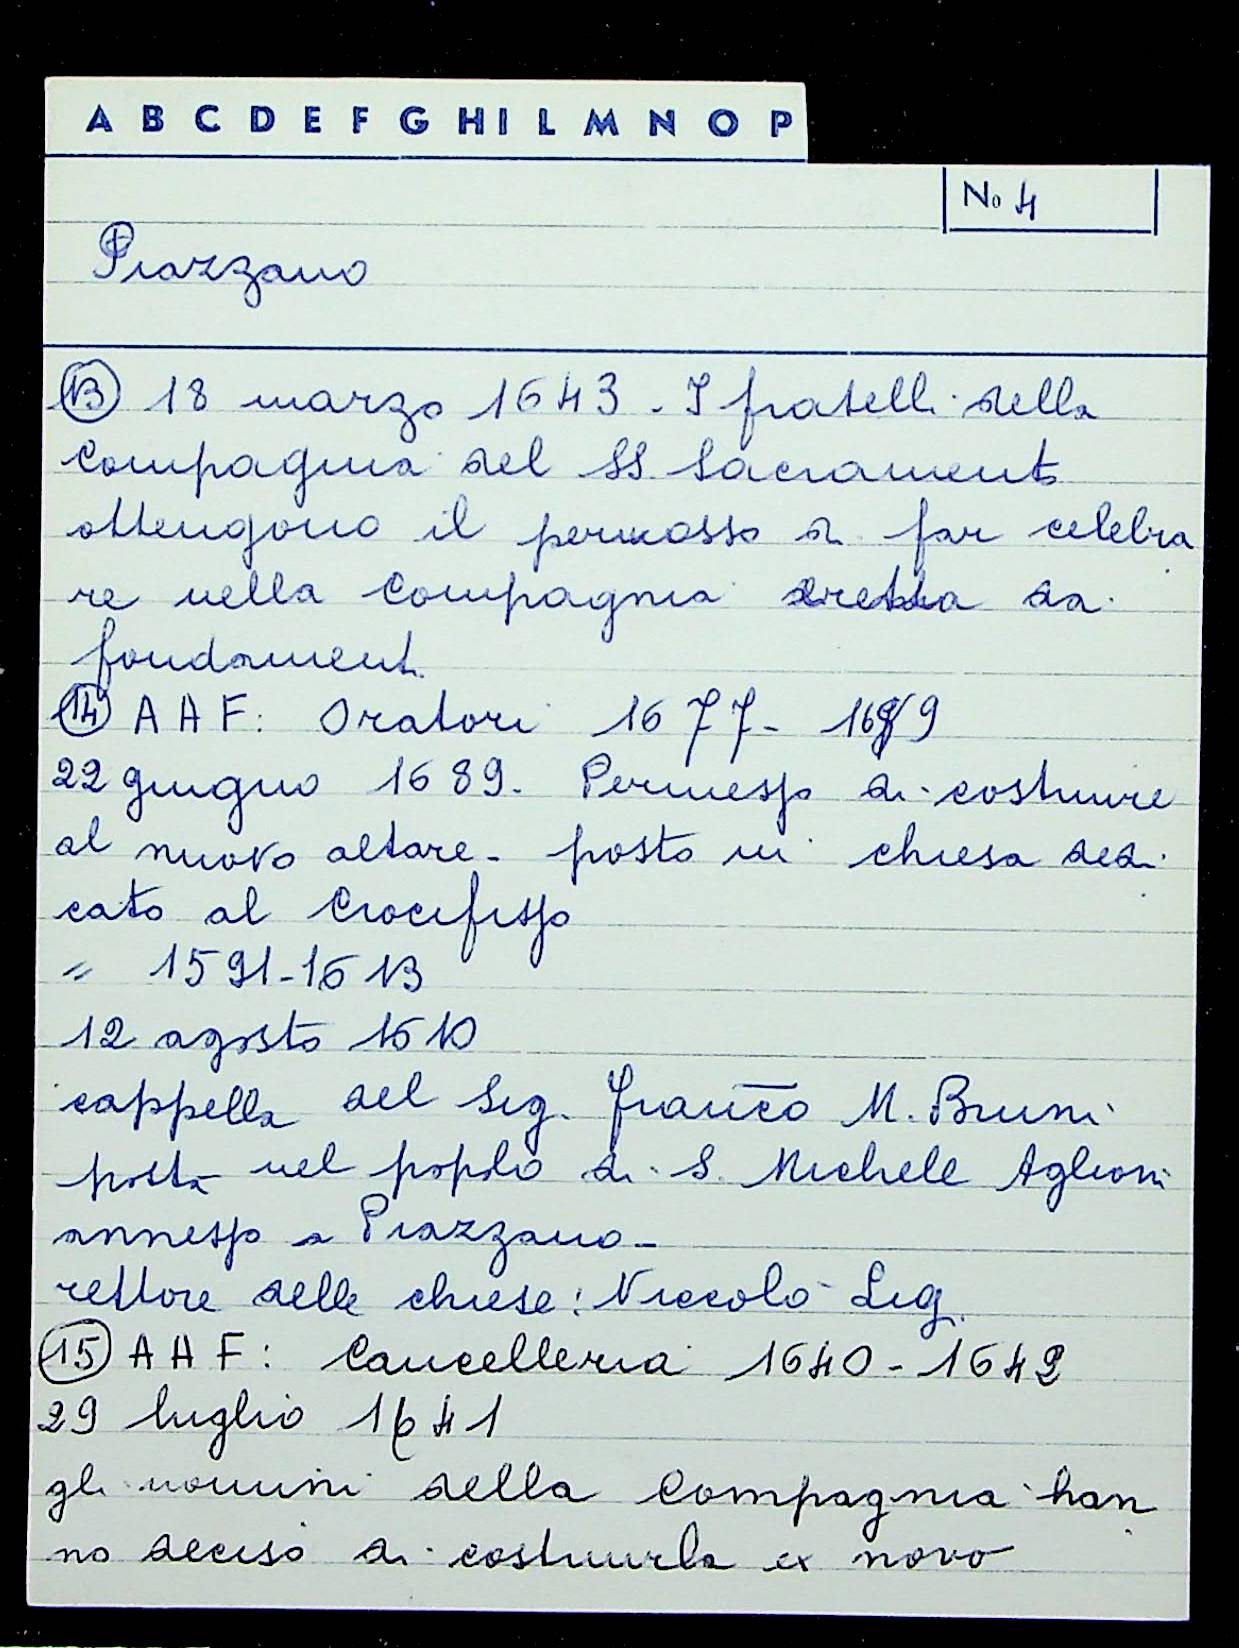 A B C D E F G H I L M N O P
No 4
Piazzano
13 18 marzo 1643. I fratelli della
Compagnia del SS. Sacramento
ottengono il permosso a far celebra
re nella Compagnia eretta da
fondamenti
14 A A F: Oratori 1677- 1689
22 giugno 1689. Permesso di costruire
al nuovo altare - posto in chiesa dedi
cato al Crocifisso
" 1591-1613
12 agosto 1610
cappella del Sig. Franco M. Bruni
posta nel popolo di S. Michele Aglioni
annesso a Piazzano -
rettore delle chiese: Niccolò Lig.
15 A A F: Cancelleria 1640-1642
29 luglio 1641
gli uomini della Compagnia han
no deciso di costruirla ex novo